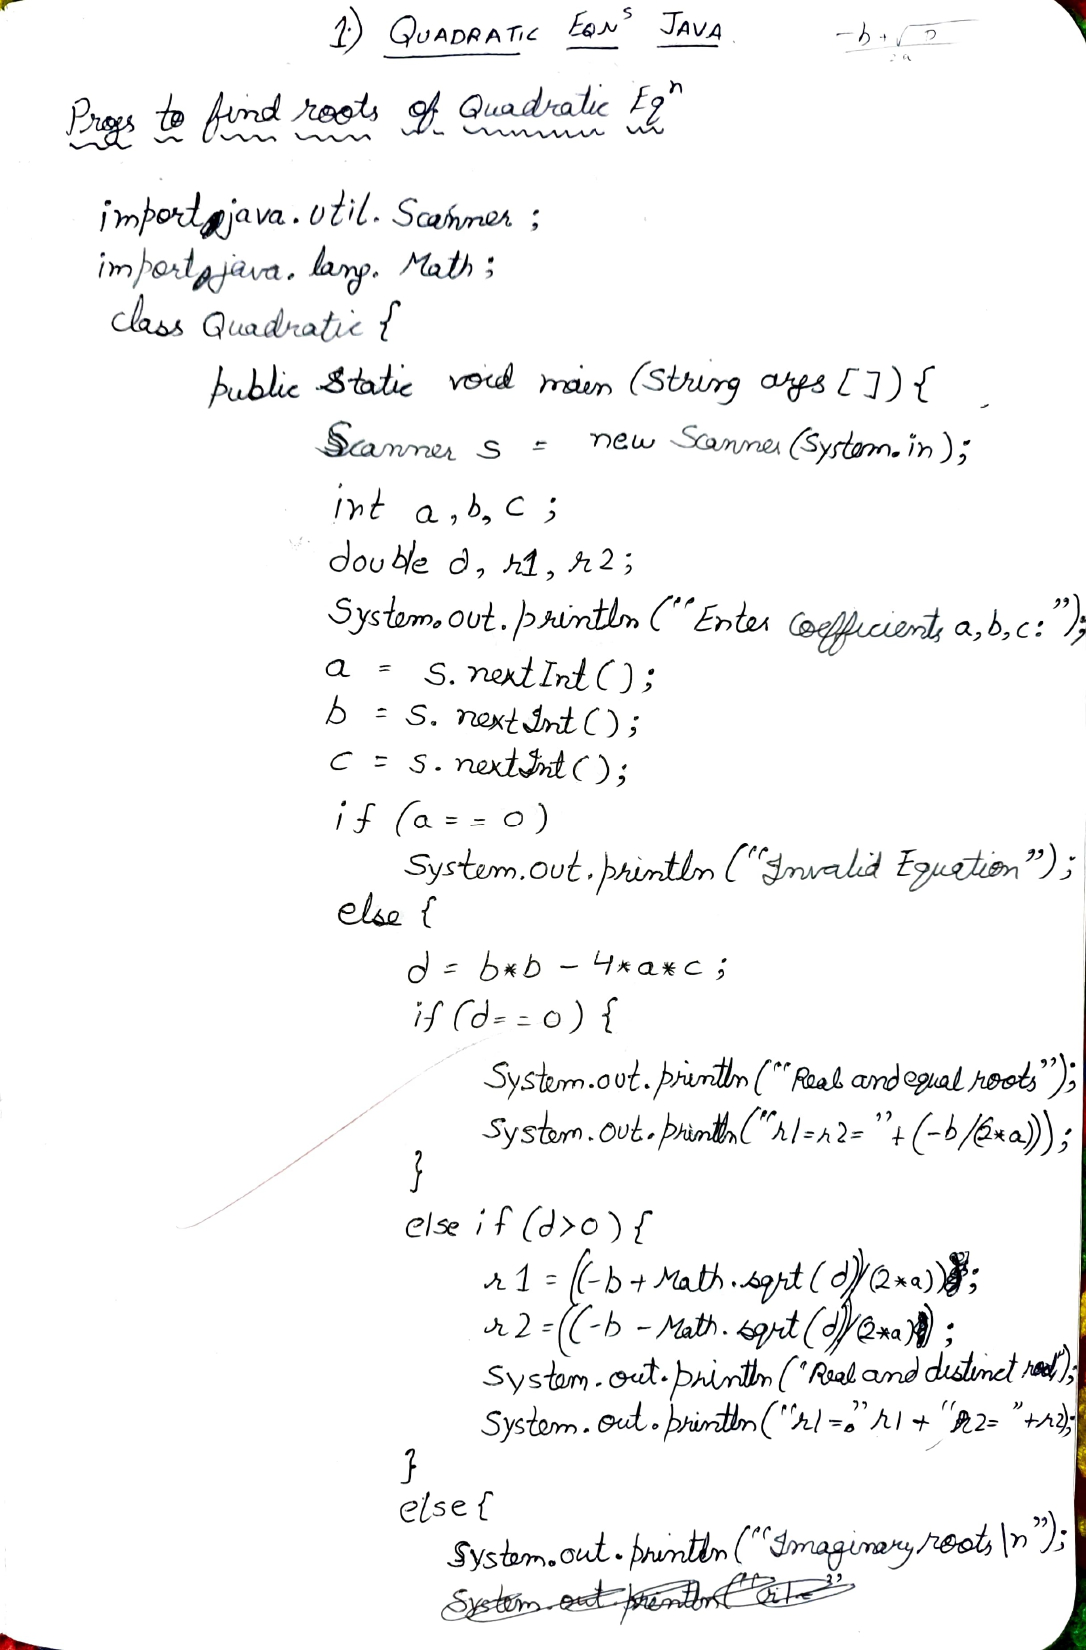 1) QUADRATIC EQNˢ JAVA
-b+√D
2a
Progs to find roots of Quadratic Eqⁿ
import java.util.Scanner;
import java.lang.Math;
class Quadratic {
public static void main (String args []) {
Scanner s = new Scanner (System.in);
int a, b, c;
double d, r1, r2;
System.out.println ("Enter Coefficients a, b, c: ");
a = s.nextInt ();
b = s.nextInt ();
c = s.nextInt ();
if (a == 0)
System.out.println ("Invalid Equation");
else {
d = b*b - 4*a*c;
if (d == 0) {
System.out.println ("Real and equal roots");
System.out.println ("r1=r2= "+(-b/(2*a)));
}
else if (d>0) {
r1 = ((-b + Math.sqrt (d))/(2*a));
r2 = ((-b - Math.sqrt (d))/(2*a));
System.out.println ("Real and distinct root");
System.out.println ("r1=" r1 + "R2= "+r2);
}
else {
System.out.println ("Imaginary roots \n");